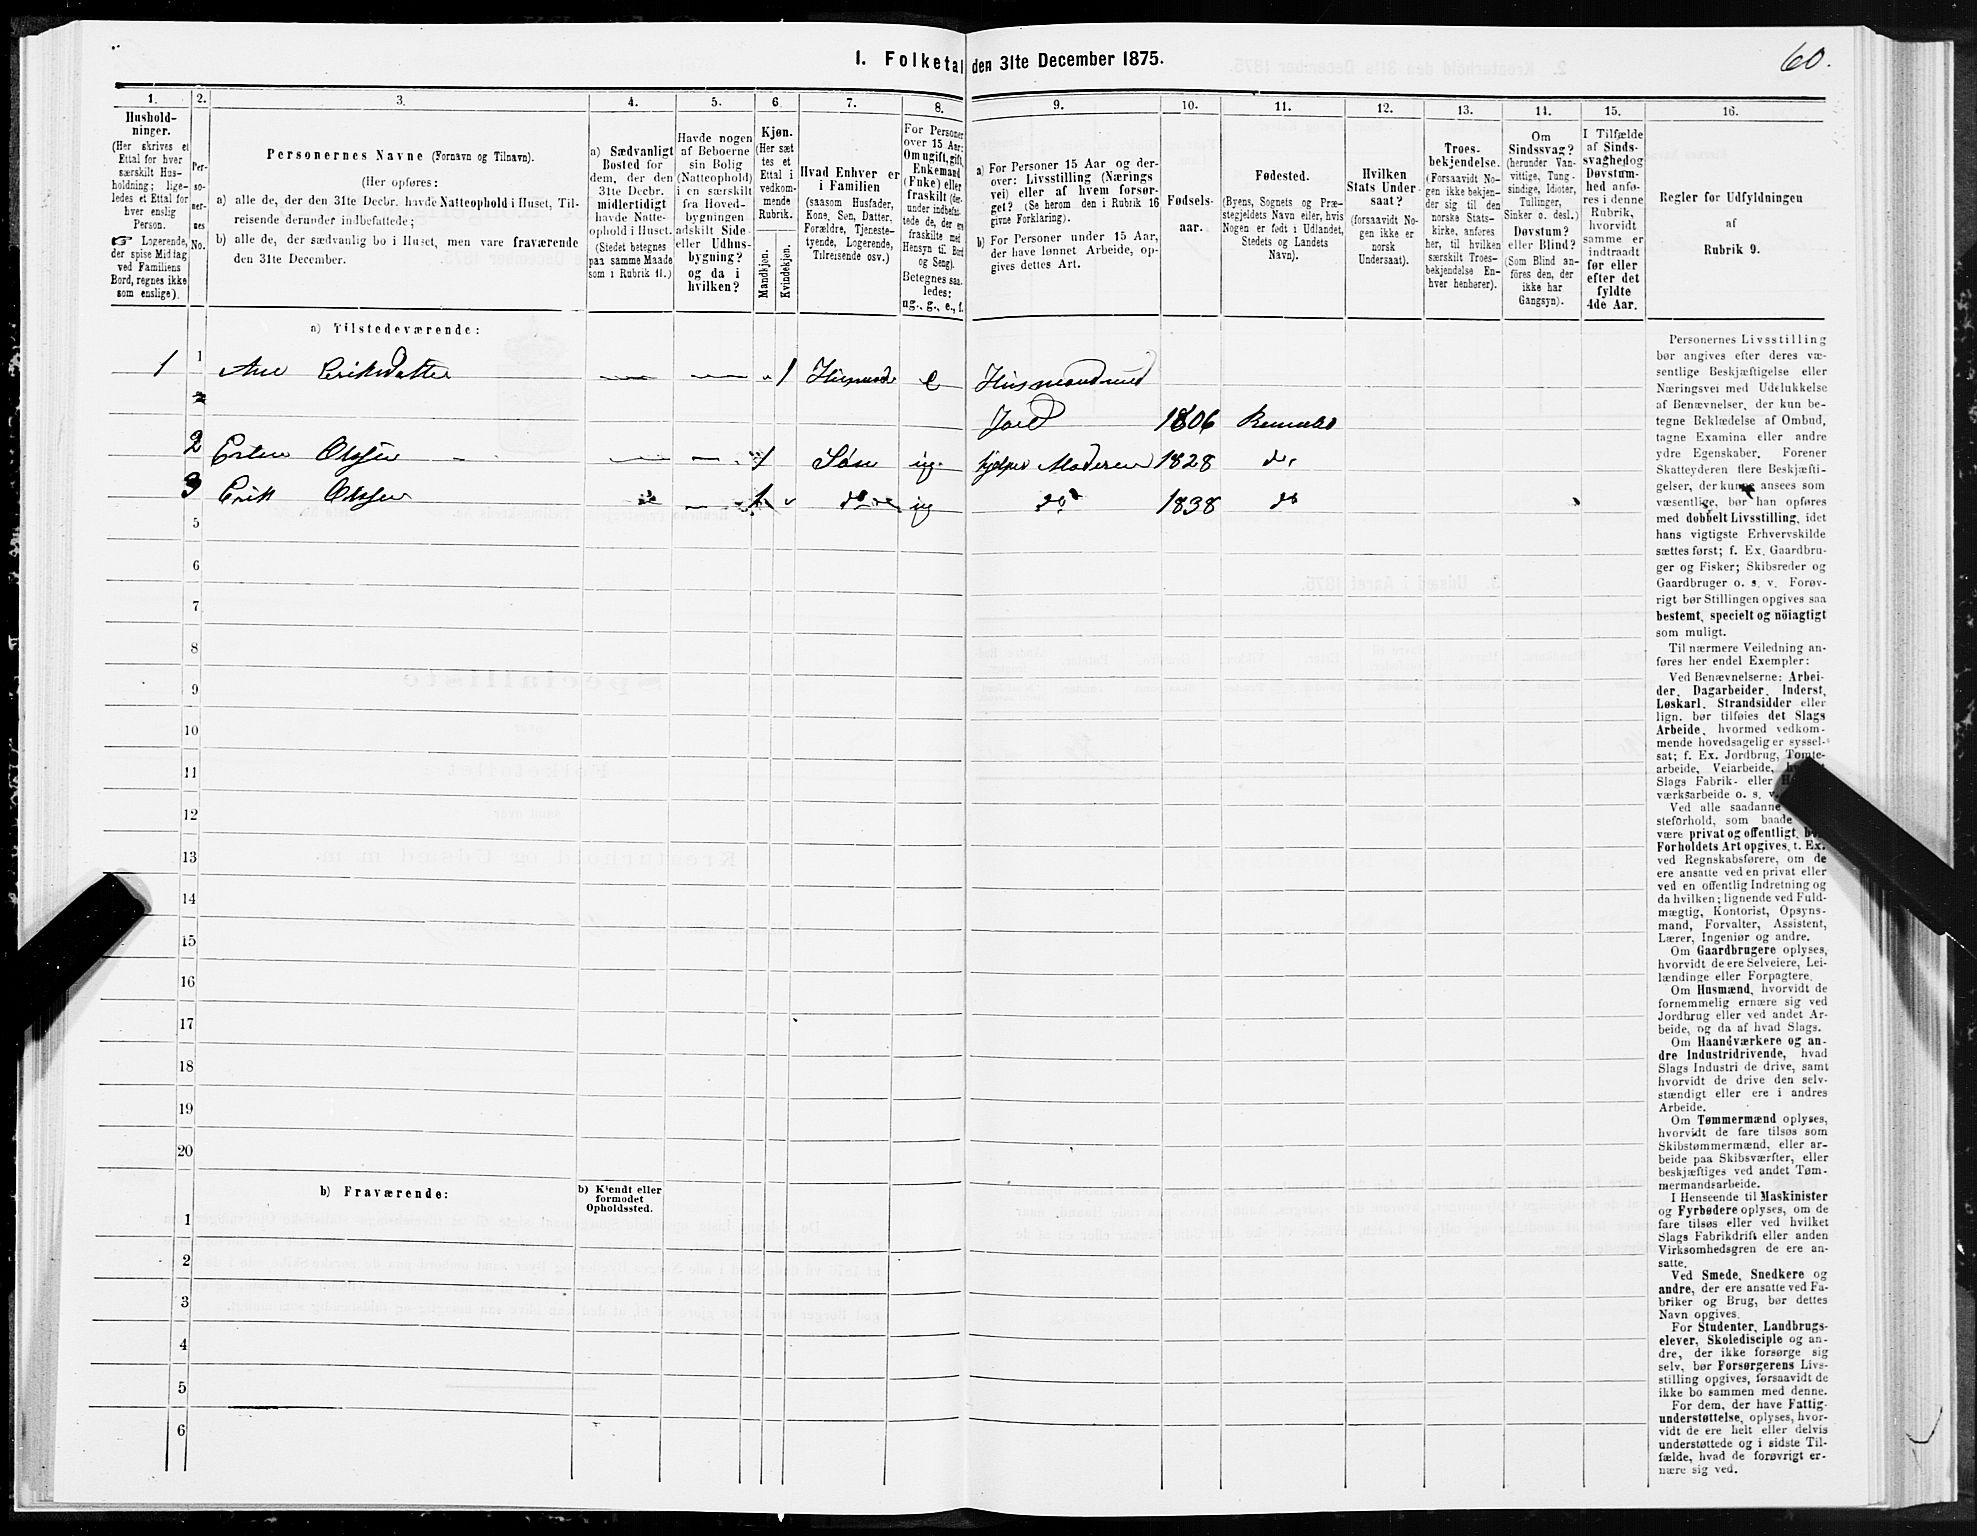 1. Folketal den 31te December 1875.
60.
1.
2.
3.
4.
5.
6.
7.
8.
9.
10.
11.
12.
13.
14.
15.
16.
Hushold-
ninger.
(Her skrives et
Ettal for hver
særskilt Hus-
holdning; lige-
ledes et Ettal for
hver enslig
Person.
☞ Logerende,
der spise Middag
ved Familiens
Bord, regnes ikke
som enslige).
Per-
so-
ner-
nes
No.
Personernes Navne (Fornavn og Tilnavn).
(Her opføres:
a) alle de, der den 31te Decbr. havde Natteophold i Huset, Til-
reisende derunder indbefattede;
b) alle de, der sædvanlig bo i Huset, men vare fraværende
den 31te December.
a) Sædvanligt
Bosted for
dem, der den
31te Decbr.
midlertidigt
havde Natte-
ophold i Huset.
(Stedet betegnes
paa samme Maade
som i Rubrik 11.)
Havde nogen
af Beboerne
sin Bolig
(Natteophold)
i en særskilt
fra Hoved-
bygningen
adskilt Side-
eller Udhus-
bygning?
og da i
hvilken?
Kjøn.
(Her sæt
tes et
Ettal i
vedkom-
mende
Rubrik.
Mandkjøn.
Kvindekjøn.
Hvad Enhver er
i Familien
(saasom Husfader,
Kone, Søn, Datter,
Forældre, Tjeneste-
tyende, Logerende,
Tilreisende osv.)
For Personer
over 15 Aar:
Om ugift, gift,
Enkemand
(Enke) eller
fraskilt (der-
under indbefat-
tede de, der ere
fraskilte med
Hensyn til Bord
og Seng).
Betegnes saa-
ledes:
ug., g., e., f.
a) For Personer 15 Aar og der-
over: Livsstilling (Nærings
vei) eller af hvem forsør-
get? (Se herom den i Rubrik 16
givne Forklaring).
b) For Personer under 15 Aar,
der have lønnet Arbeide, op-
gives dettes Art.
Fødsels-
aar.
Fødested.
(Byens, Sognets og Præ-
stegjeldets Navn eller, hvis
Nogen er født i Udlandet,
Stedets og Landets
Navn).
Hvilken
Stats Under-
saat?
(forsaavidt No-
gen ikke er
norsk
Undersaat).
Troes-
bekjendelse.
(Forsaavidt No-
gen ikke bekjen-
der sig til den
norske Stats-
kirke, anføres
her, til hvilken
særskilt Troes-
bekjendelse En-
hver henhører).
Om
Sindssvag?
(herunder Van-
vittige, Tung-
sindige, Idioter,
Tullinger,
Sinker o. desl.)
Døvstum?
eller Blind?
(Som Blind an-
føres den, der
ikke har
Gangsyn).
I Tilfælde
af Sinds-
svaghed og
Døvstum-
hed anfø-
res i denne
Rubrik,
hvorvidt
samme er
indtraadt
før eller
efter det
fyldte
4de Aar.
Regler for Udfyldningen
af
Rubrik 9.
a) Tilstedeværende:
1 1 Ane Eriksdatter 1 e Husmand med
Jord 1806
2 Olsen 1 Søn ug. hjelper Moderen 1828 do
3 Erik Olsen 1 do ug do 1838 do
5
6
7
8
9
10
11
12
13
14
15
16
17
18
19
20
b) Fraværende:
b) Kjendt eller
formodet
Opholdssted.
1
2
3
4
5
6
Personernes Livsstilling
bør angives efter deres væ-
sentlige Beskjæftigelse eller
Næringsvei med Udelukkelse
af Benævnelser, der kun be-
tegne Beklædelse af Ombud,
tagne Examina eller andre
ydre Egenskaber. Forener
Skatteyderen flere Beskjæfti-
gelser, der kunne ansees som
væsentlige, bør han opføres
med dobbelt Livsstilling, idet
hans vigtigste Erhvervskilde
sættes først; f. Ex. Gaardbru-
ger og Fisker; Skibsreder og
Gaardbruger o. s. v. Forøv-
rigt bør Stillingen opgives saa
bestemt, specielt og nöiagtigt
som muligt.
Til nærmere Veiledning an-
føres her endel Exempler:
Ved Benævnelserne: Arbei-
der, Dagarbeider, Inderst,
Løskarl, Strandsidder eller
lign. bør tilføies det Slags
Arbeide, hvormed vedkom-
mende hovedsagelig er syssel-
sat; f. Ex. Jordbrug, Tomte-
arbeide, Veiarbeide,
Slags Fabrik- eller
værksarbeide o. s. v.
Ved alle saadanne
steforhold, som baade
være privat og offentligt, bør
Forholdets Art opgives, t. Ex.
ved Regnskabsførere, om de
ere ansatte ved en privat eller
ved en offentlig Indretning og
da hvilken; lignende ved Fuld-
mægtig, Kontorist, Opsyns-
mand, Forvalter, Assistent,
Lærer, Ingeniør og andre.
Om Gaardbrugere oplyses,
hvorvidt de ere Selveiere, Lei-
lændinge eller Forpagtere.
Om Husmænd, hvorvidt de
fornemmelig ernære sig ved
Jordbrug eller ved andet Ar-
beide, og da af hvad Slags.
Om Haandværkere og an-
dre Industridrivende, hvad
Slags Industri de drive, samt
hvorvidt de drive den selv-
stændigt eller ere i andres
Arbeide.
Om Tømmermænd oplyses,
hvorvidt de fare tilsøs som
Skibstømmermænd, eller ar-
beide paa Skibsværfter, eller
beskjæftiges ved andet Tøm-
mermandsarbeide.
I Henseende til Maskinister
og Fyrbødere oplyses, om de
fare tilsøs eller ved hvilket
Slags Fabrikdrift eller anden
Virksomhedsgren de ere an-
satte.
Ved Smede, Snedkere og
andre, der ere ansatte ved Fa-
briker og Brug, bør dettes
Navn opgives.
For Studenter, Landbrugs-
elever, Skoledisciple og an-
dre, der ikke forsørge sig
selv, bør Forsørgerens Livs-
stilling opgives, forsaavidt de
ikke bo sammen med denne.
For dem, der have Fattig-
understøttelse, oplyses, hvor-
vidt de ere helt eller delvis
understøttede og i sidste Til-
fælde, hvad de forøvrigt er-
nære sig ved.